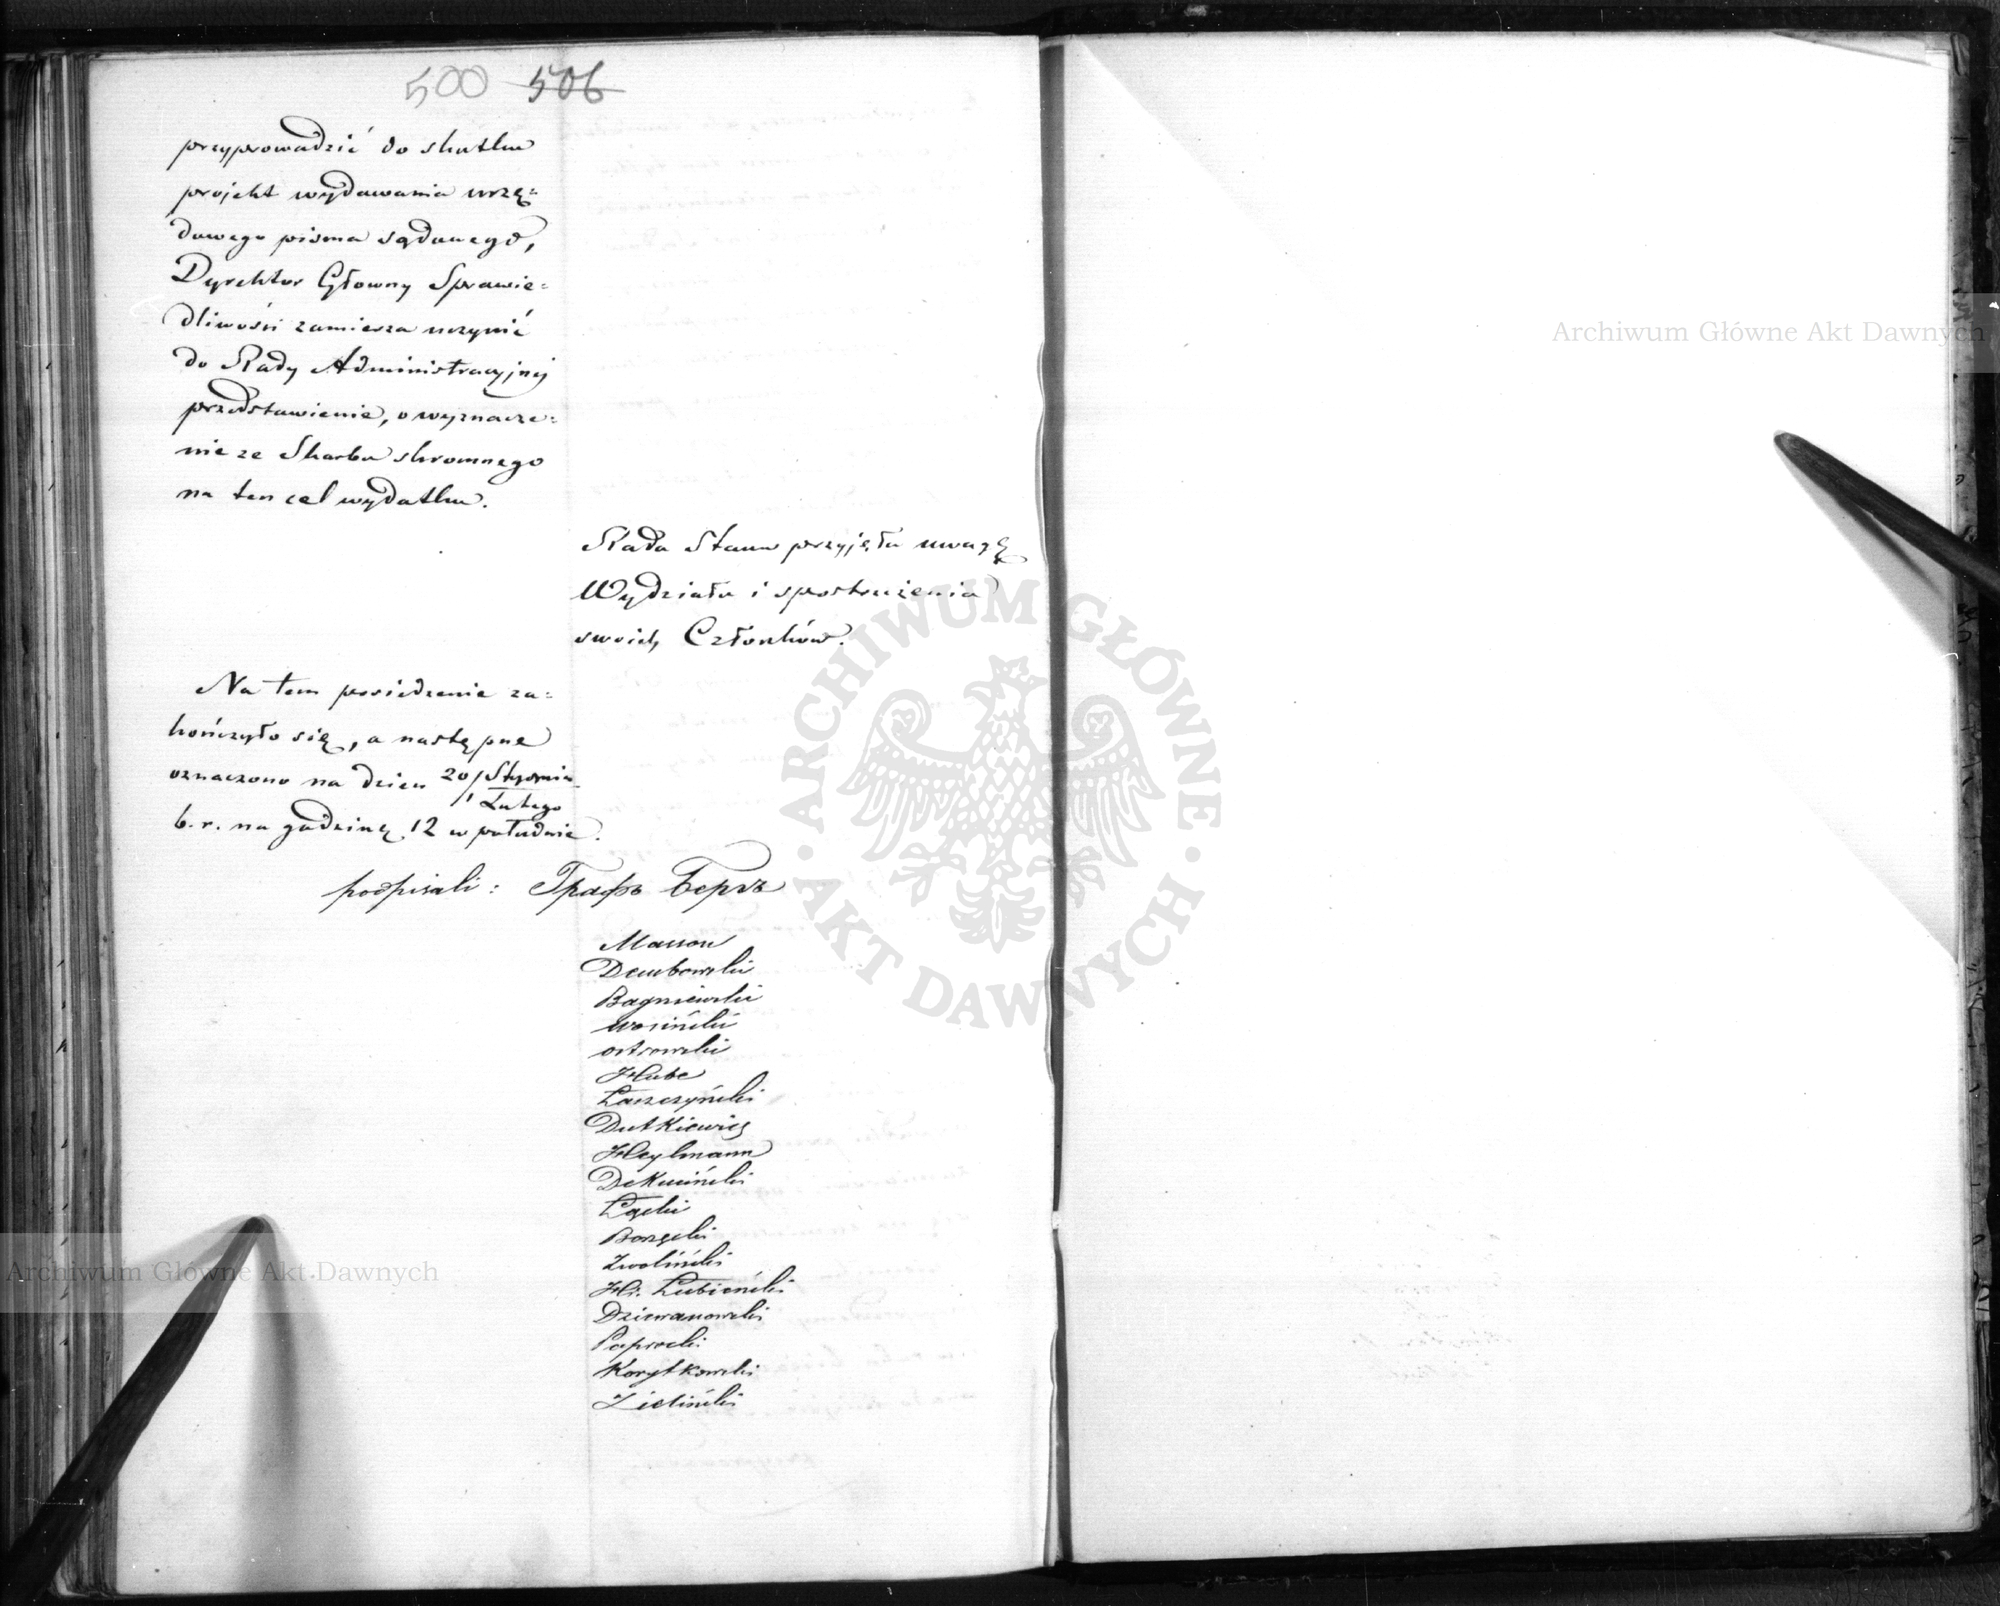 500 506
przyprowadzić do skutku
projekt wydawania urzę=
dowego pisma sądowego,
Dyrektor Główny Sprawie=
dliwości zamierza uczynić
do Rady Administracyjnej
przedstawienie, o wyznacze=
nie ze Skarbu skromnego
na ten cel wydatku.
Rada Stanu przyjęła uwagę
Wydziału i spostrzeżenia
swoich Członków.
Na tem posiedzenie za=
kończyło się, a następne
oznaczono na dzień 20/1 Stycznia/Lutego
b. r. na godzinę 12 w południe.
podpisali: Графъ Бергъ
Masson
Dembowski
Bagniewski
Wosiński
Ostrowski
Hube
Łaszczyński
Dutkiewicz
Heylmann
Dekuciński
Łęcki
Borzęcki
Zwoliński
Hr. Łubieński
Dziewanowski
Paprocki
Korytkowski
Zieliński
ARCHIWUM GŁÓWNE · AKT DAWNYCH ·
Archiwum Główne Akt Dawnych
Archiwum Główne Akt Dawnych